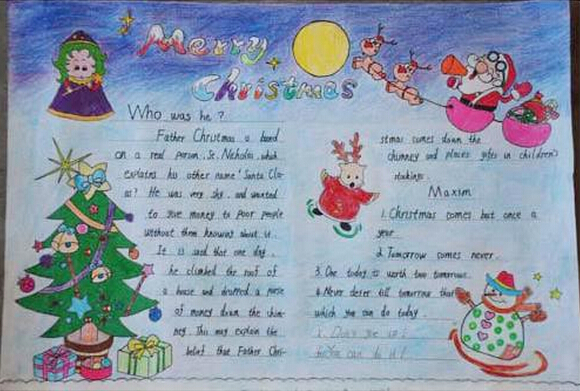 Merry
Christmas
Who was he?
Father Christmas a based
on a real person, St. Nicholas, which
explains his other name 'Santa Cla-
us? He was very shy, and wanted
to give money to poor people
without them knowing about it.
It is said that one day,
he climbed the roof of
a house and dropped a purse
of money down the chim-
ney. This may explain the
belief that Father Chri-
stmas comes down the
chimney and places gifts in children's
stockings.
Maxim
1. Christmas comes but once a
year
2. Tomorrow comes never.
3. One today is worth two tomorrows.
4. Never defer till tomorrow that
which you can do today.
You can do it!